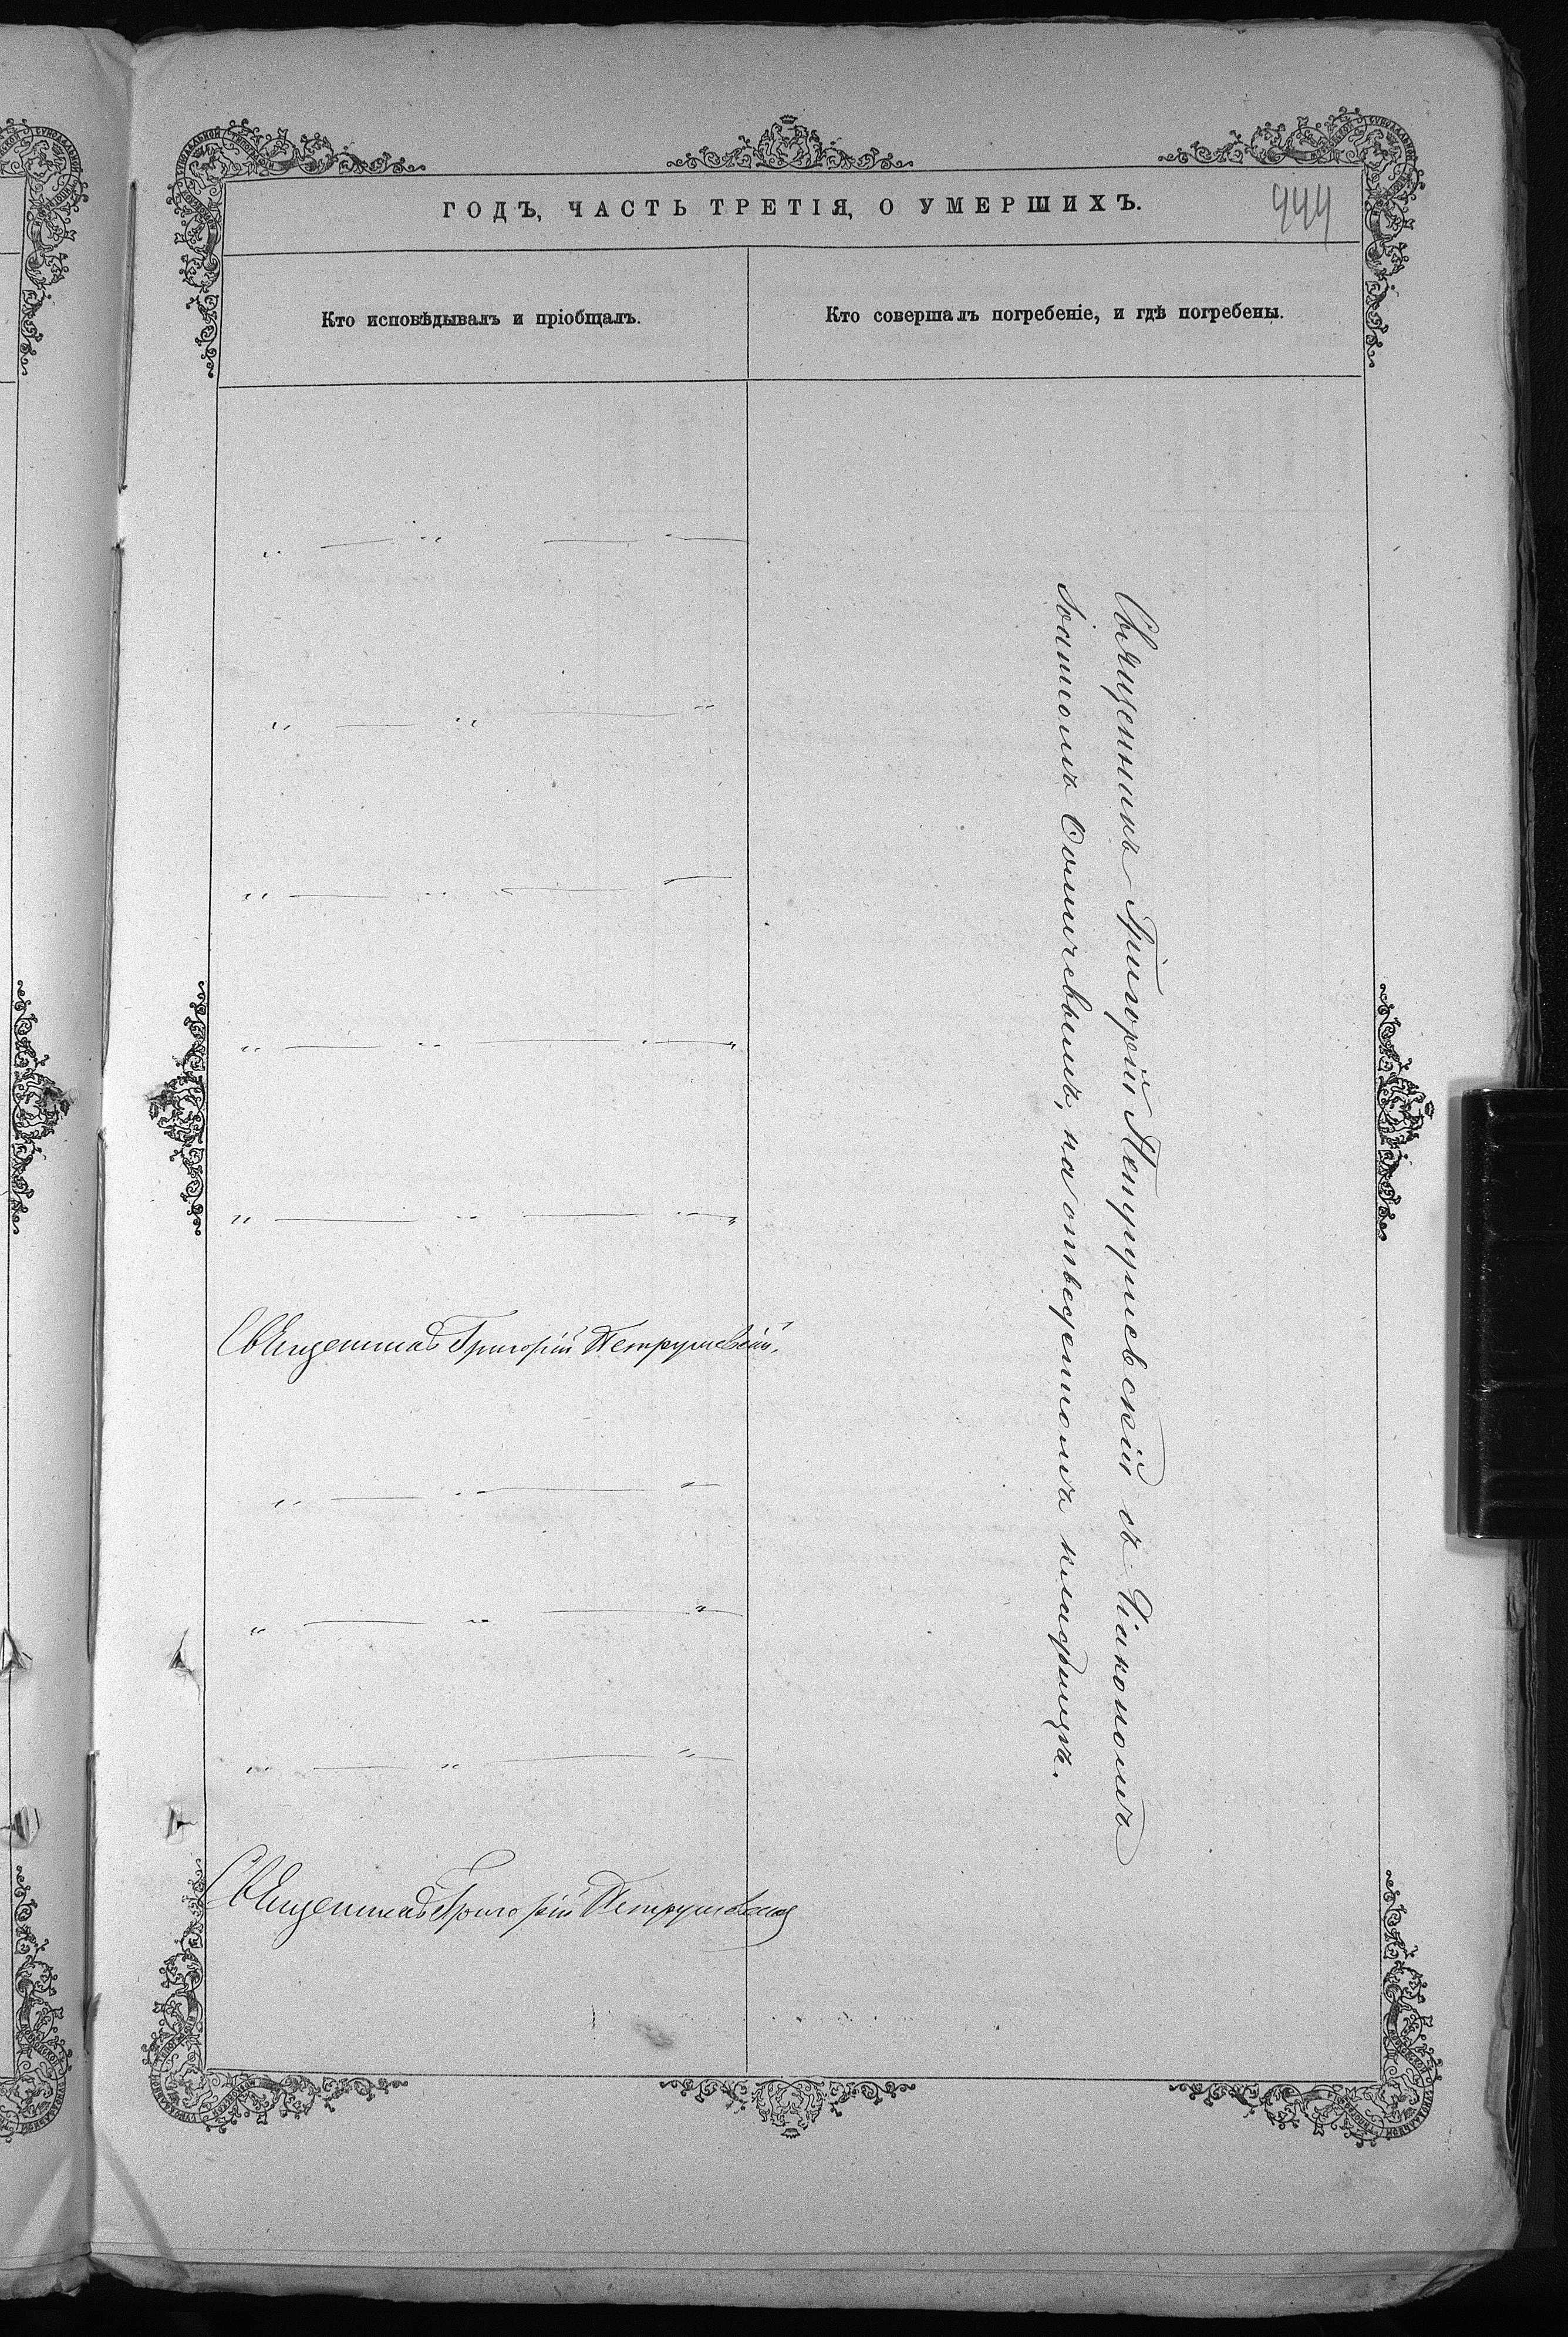 ГОДЪ, ЧАСТЬ ТРЕТІЯ, О УМЕРШИХЪ.
444
Кто исповѣдывалъ и пріобщалъ.
Кто совершалъ погребеніе, и гдѣ погребены.
Священникъ Григорій Петрушевскій.
Священникъ Григорій Петрушевскій
Священникъ Григорій Петрушевскій съ Діакономъ
Іоанномъ на отведенномъ кладбищѣ.